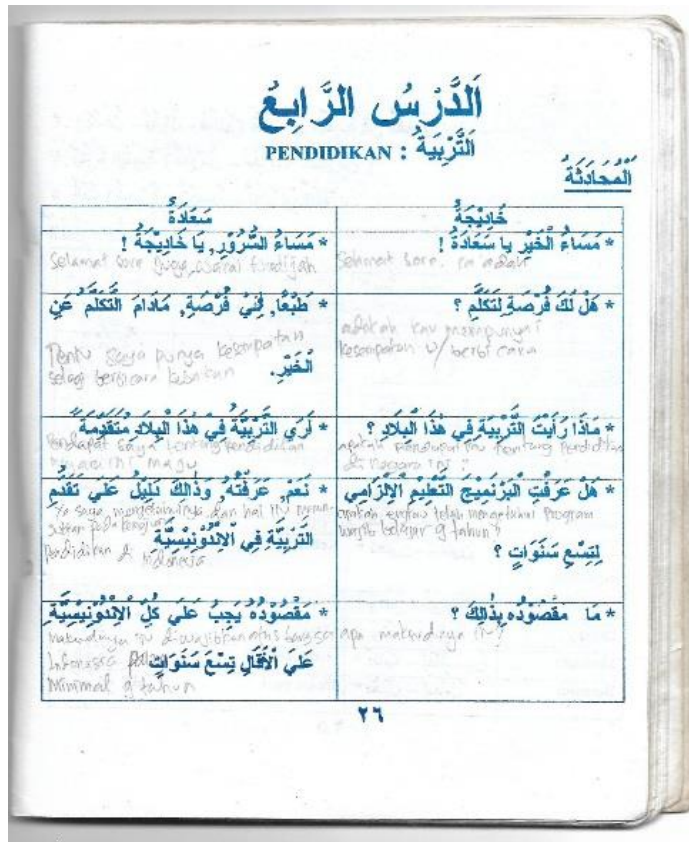 اَلدَّرْسُ الرَّابِعُ
اَلتَّرْبِيَةُ : PENDIDIKAN
اَلْمُحَادَثَةُ
خَادِيْجَةُ
سَعَادَةُ
* مَسَاءُ الْخَيْرِ يا سَعَادَةُ !
Selamat sore.
* مَسَاءُ السُّرُوْرِ, يَا خَادِيْجَةُ !
Selamat sore juga,
* هَلْ لَكَ فُرْصَةٌ لِتَكَلُّمِ ؟
adakah kau mempunyai
kesempatan u/ berbicara
* طَبْعًا, لِيْ فُرْصَةٍ, مَادَامَ التَّكَلُّمُ عَنِ
الْخَيْرِ.
Tentu saya punya kesempatan
selagi berbicara kebaikan
* مَاذَا رَأَيْتَ التَّرْبِيَةَ فِي هٰذَا الْبِلَادِ ؟
apakah pendapatmu tentang pendidikan
di negara ini ?
* لَرَي التَّرْبِيَّةُ فِيْ هٰذَا الْبِلَادِ مُتَقَدِّمَةً
Pendapat saya tentang pendidikan
negara ini maju
* هَلْ عَرَفْتِ الْبَرْنَمِيْجَ التَّعْلِيْمِ الْاِلْزَامِي
لِتِسْعِ سَنَوَاتٍ ؟
apakah engkau telah mengetahui program
wajib belajar 9 tahun ?
* نَعَمْ, عَرَفْتُهُ, وَذٰالِكَ دَلِيْلُ عَلَي تَقَدُّمِ
التَّرْبِيَّةِ فِي الْاِنْدُوْنِيْسِيَّةِ
Ya saya mengetahuinya, dan hal itu
pada kemajuan
Pendidikan di Indonesia
* مَا مَقْصُوْدُه بِذَالِكَ ؟
apa maksudnya itu ?
* مَقْصُوْدُهُ يَجِبُ عَلَي كُلِّ الْاِنْدُوْنِيْسِيَّةِ
عَلَي الْأَقَالِ تِسْعَ سَنَوَاتٍ
maksudnya itu diwajibkan atas bangsa
Indonesia
Minimal 9 tahun
٢٦